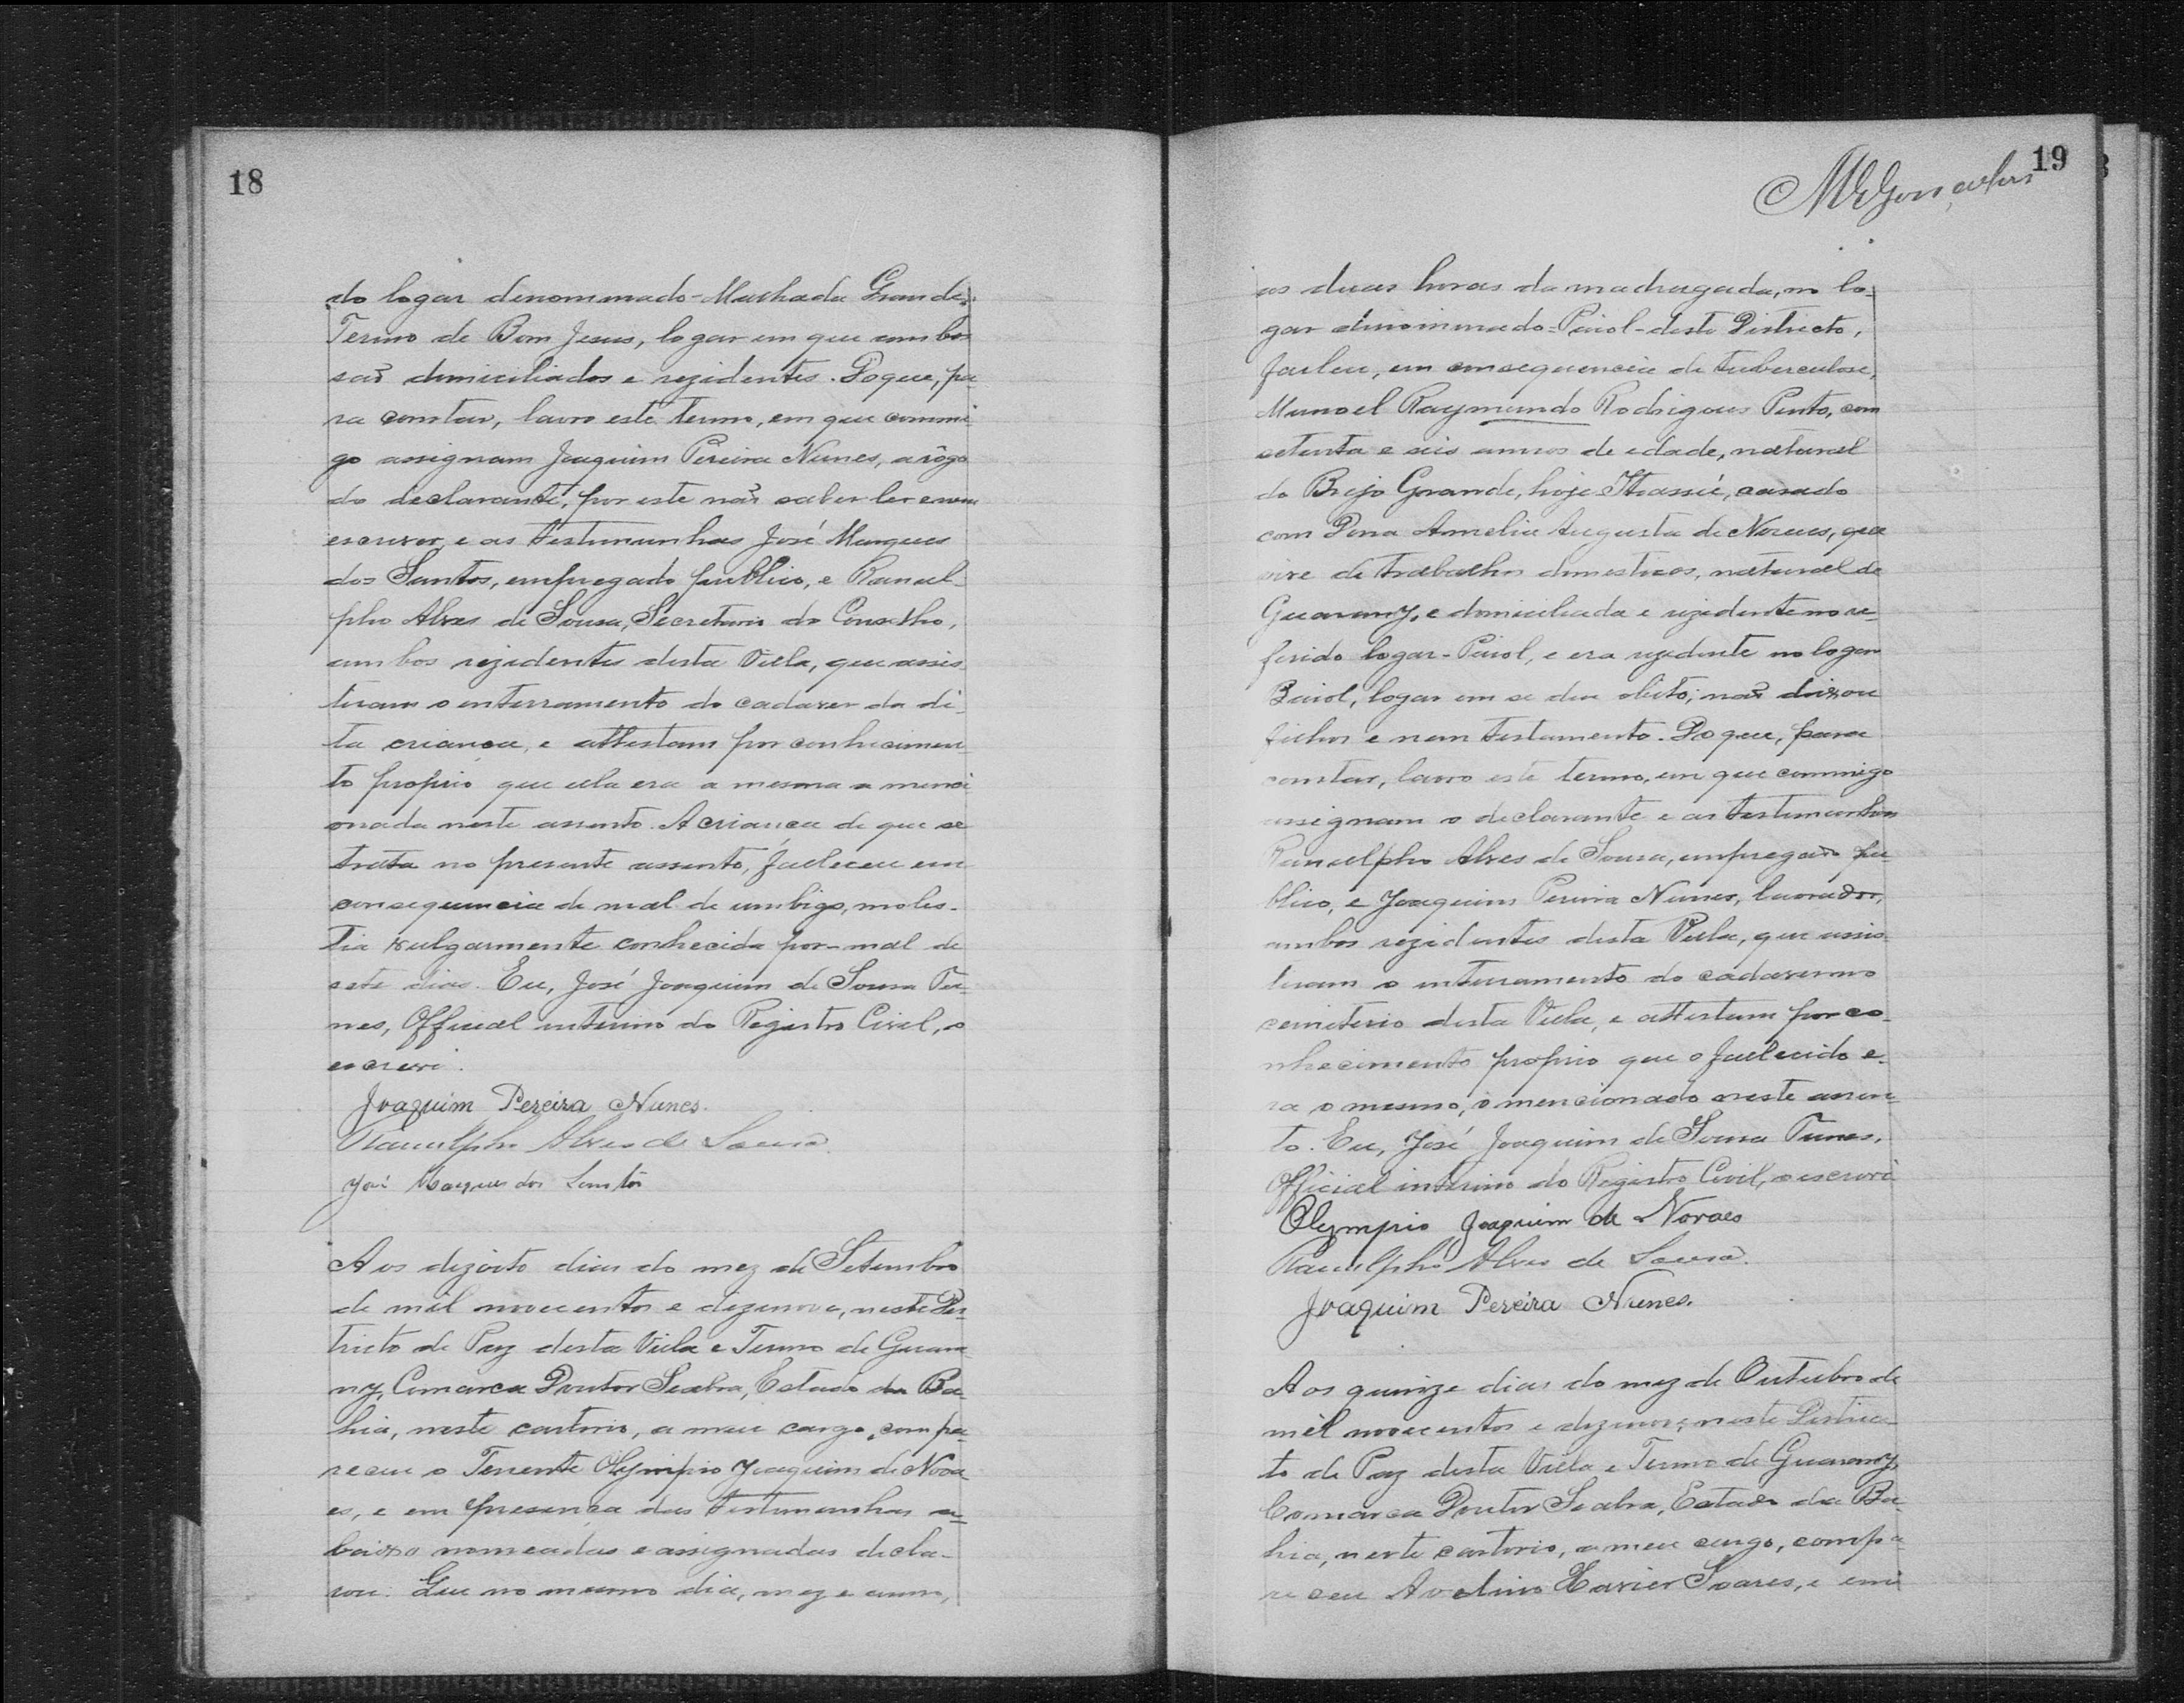 18
do logar denominado - Machada Grande,
Termo de Bom Jesus, logar em que ambos
saõ domiciliados e rezidentes. Do que, pa-
ra constar, lavro este termo, em que commi
go assignam Joaquim Pereira Nunes, a rôgo
do declarante, por este naõ saber ler e nem
escrever, e as testimunhas José Marques
dos Santos, empregado publico, e Ranul-
pho Alves de Sousa, Secretario do Conselho,
ambos rezidentes desta Villa, que assis
tiram o enterramento do cadaver da di-
ta criança, e attestam por conhecimen-
to proprio que ella era a mesma a menci
onada neste assento. A criança de que se
trata no presente assento, falleceu em
consequencia de mal de umbigo, moles-
tia vulgarmente conhecida por - mal de
sete dias. Eu, José Joaquim de Sousa Tu-
nes, Official interino do Registro Civil, o
escrevi.
Joaquim Pereira Nunes.
Ranulpho Alves de Sousa.
José Marques dos Santos
Aos dezoito dias do mez de Setembro
de mil novecentos e dezenove, neste Des-
tricto de Paz desta Villa e Termo de Guara-
ny, Comarca Doutor Seabra, Estado da Ba-
hia, neste cartorio, a meu cargo, compa-
receu o Tenente Olympio Joaquim de Nova-
es, e em presença das testimunhas a-
baixo nomeadas e assignadas decla-
rou: Que no mesmo dia, mez e anno,
19
MEGonçalves
as duas horas da madrugada, no lo-
gar denominado = Paiol - deste Districto,
falleu, em consequencia de tuberculose,
Manoel Raymundo Rodrigues Pinto, com
setenta e seis annos de edade, natural
do Brejo Grande, hoje Ituassú, casado
com Dona Amelia Augusta de Novaes, que
vive de trabalhos domesticos, natural de
Guarany, e domiciliada e rezidente no re-
ferido logar - Paiol, e era rezidente no logar
Paiol, logar em se deu obito; naõ deixou
filhos e nem testamento. Do que, para
constar, lavro este termo, em que commigo
assignam o declarante e as testimunhas
Ranulpho Alves de Sousa, empregado pu-
blico, e Joaquim Pereira Nunes, lavrador,
ambos rezidentes desta Villa, que assis-
tiram o enterramento do cadaver no
cemiterio desta Villa, e attestam por co-
nhecimento proprio que o fallecido e-
ra o mesmo, o mencionado neste assen-
to. Eu, José Joaquim de Sousa Tunes,
Official interino do Registro Civil, o escrevi
Olympio Joaquim de Novaes
Ranulpho Alves de Sousa.
Joaquim Pereira Nunes.
Aos quinze dias do mez de Outubro de
mil novecentos e dezenove, neste Destric-
to de Paz desta Villa e Termo de Guarany,
Comarca Doutor Seabra, Estado da Ba-
hia, neste cartorio, a meu cargo, compa
receu Avelino Xavier Soares, e em